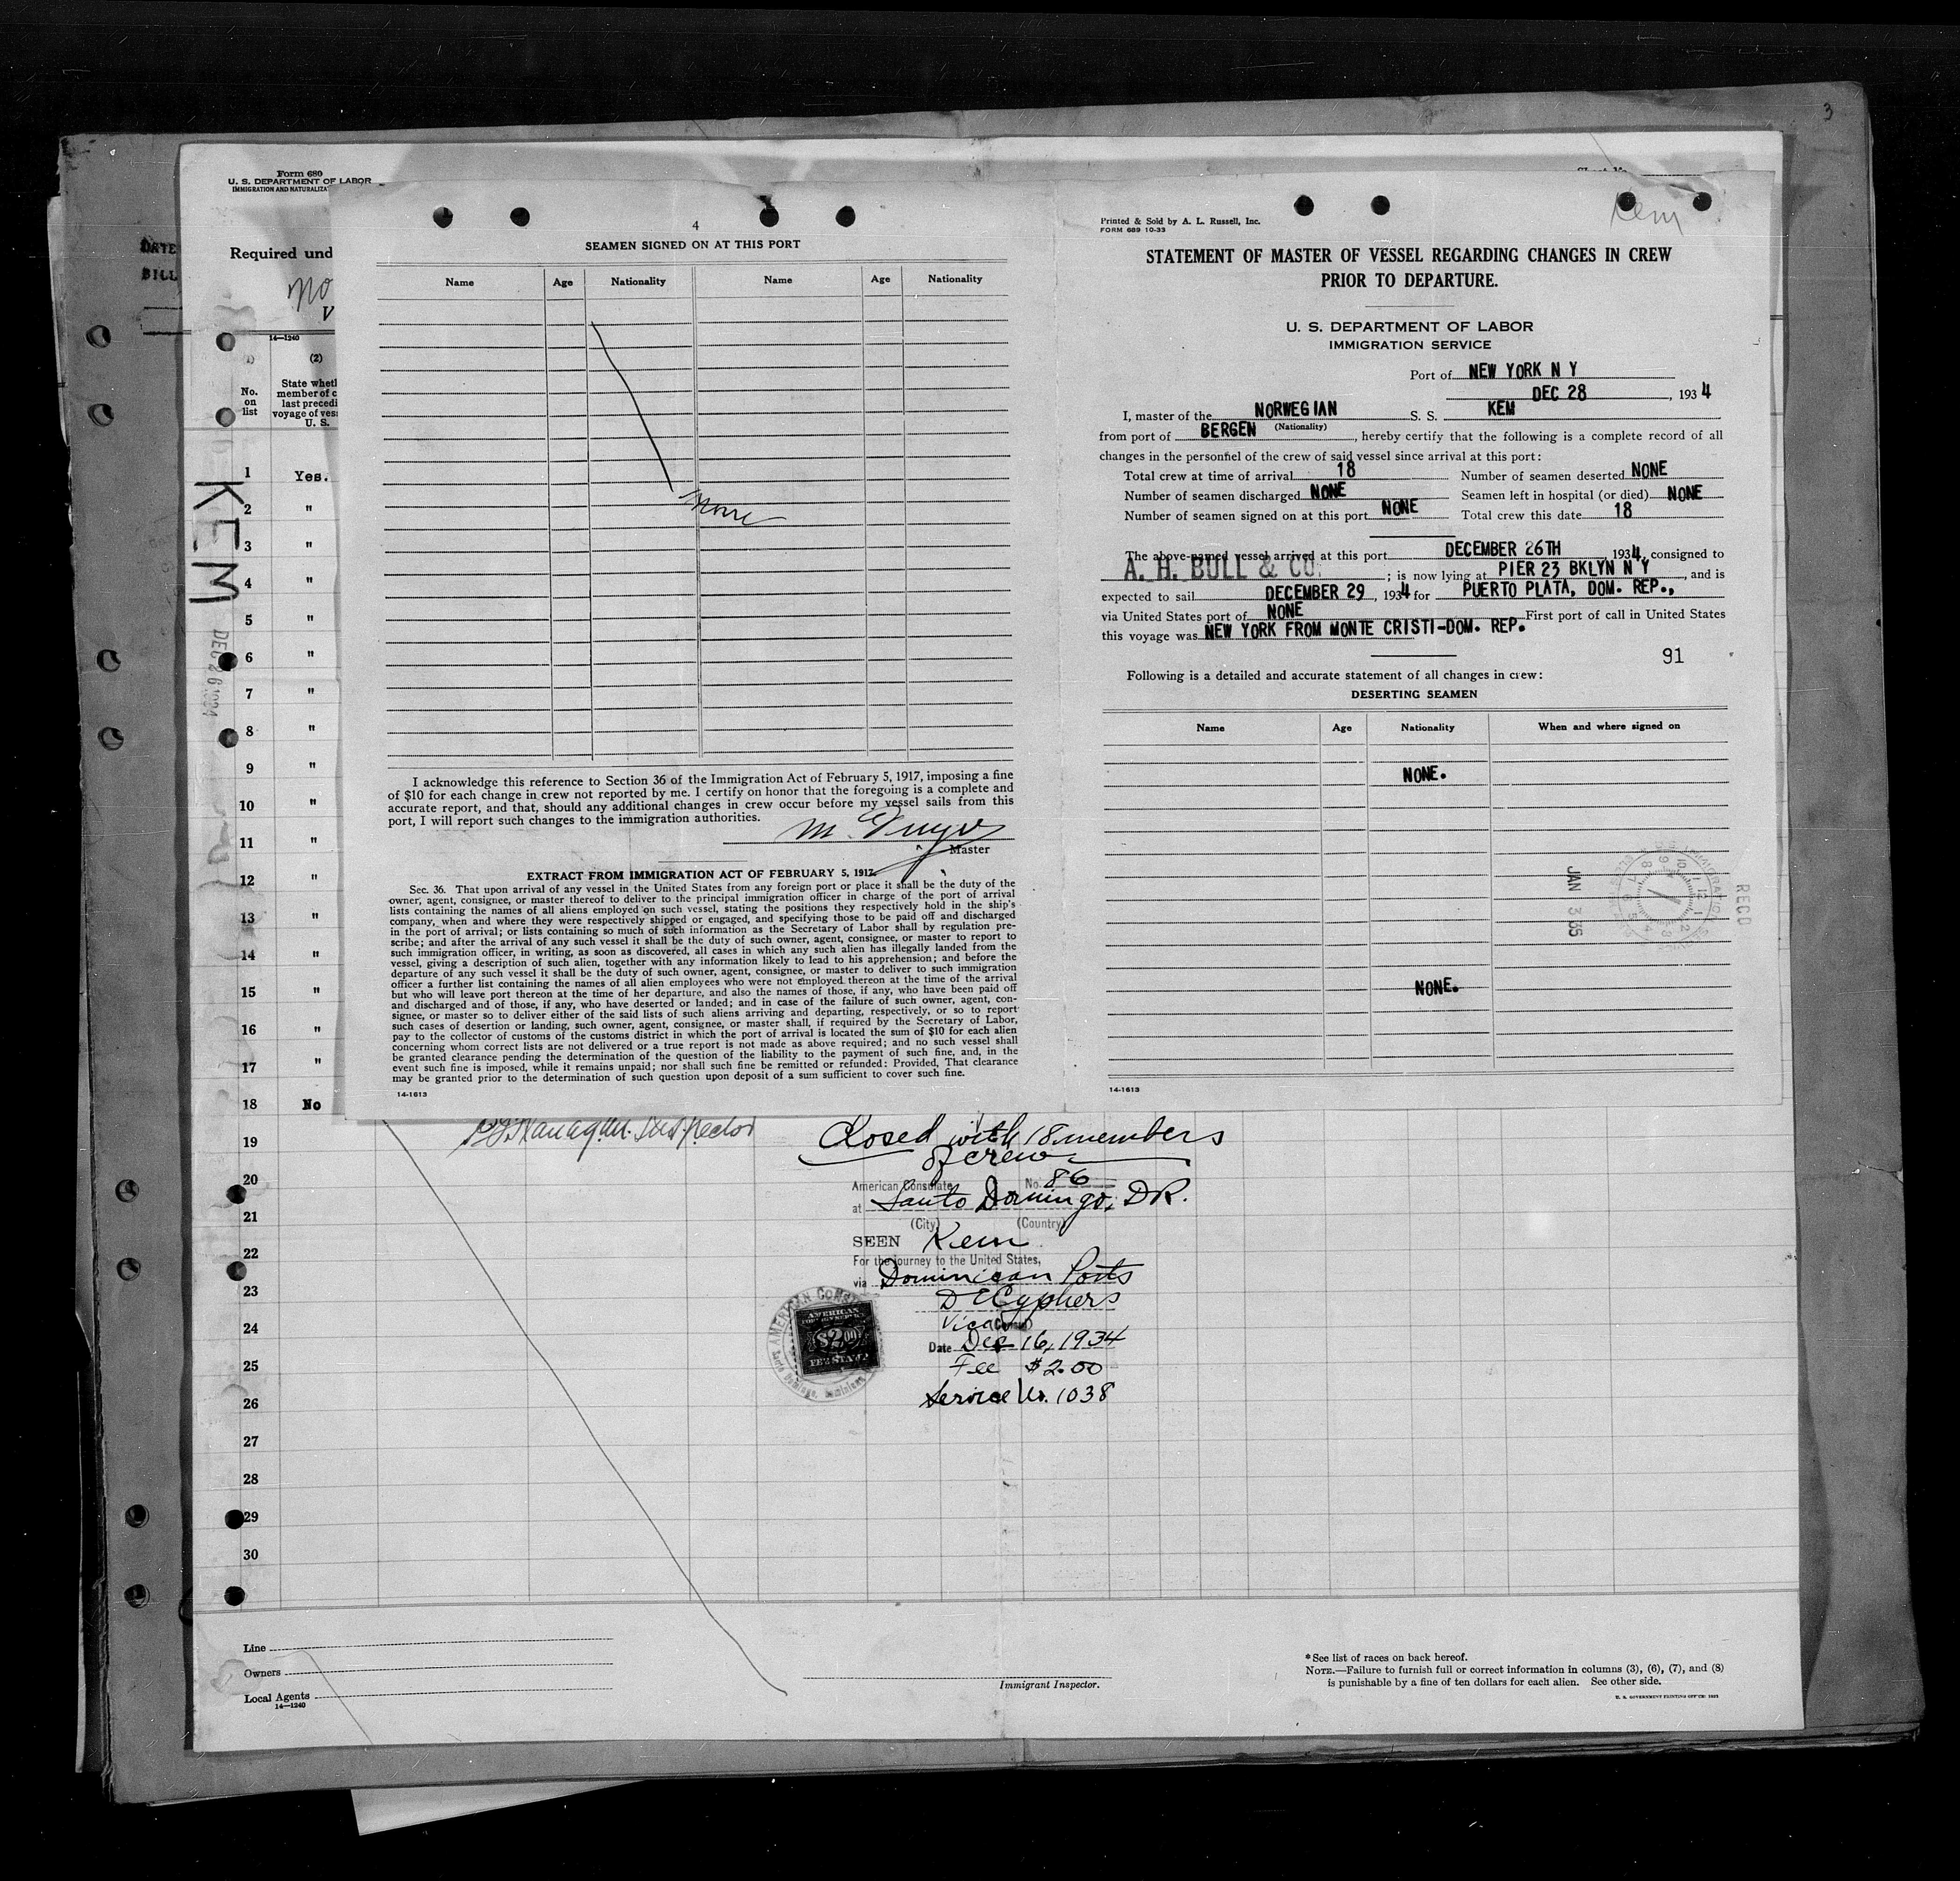 3
Form 680
U. S. DEPARTMENT OF LABOR
IMMIGRATION AND NATURALIZAT
Required und
No
V
14—1240
(2)
No.
on
list
State wheth
member of c
last precedi
voyage of vess
U. S.
1 Yes.
2 "
3 "
4 "
5 "
6 "
7 "
8 "
9 "
10 "
11 "
12 "
13 "
14 "
15 "
16 "
17 "
18 No
19
20
21
22
23
24
25
26
27
28
29
30
KEM
DEC 26 1934
DATE
BILL
4
SEAMEN SIGNED ON AT THIS PORT
Name Age Nationality Name Age Nationality
None
I acknowledge this reference to Section 36 of the Immigration Act of February 5, 1917, imposing a fine
of $10 for each change in crew not reported by me. I certify on honor that the foregoing is a complete and
accurate report, and that, should any additional changes in crew occur before my vessel sails from this
port, I will report such changes to the immigration authorities.
M.
Master
EXTRACT FROM IMMIGRATION ACT OF FEBRUARY 5, 1917.
Sec. 36. That upon arrival of any vessel in the United States from any foreign port or place it shall be the duty of the
owner, agent, consignee, or master thereof to deliver to the principal immigration officer in charge of the port of arrival
lists containing the names of all aliens employed on such vessel, stating the positions they respectively hold in the ship's
company, when and where they were respectively shipped or engaged, and specifying those to be paid off and discharged
in the port of arrival; or lists containing so much of such information as the Secretary of Labor shall by regulation pre-
scribe; and after the arrival of any such vessel it shall be the duty of such owner, agent, consignee, or master to report to
such immigration officer, in writing, as soon as discovered, all cases in which any such alien has illegally landed from the
vessel, giving a description of such alien, together with any information likely to lead to his apprehension; and before the
departure of any such vessel it shall be the duty of such owner, agent, consignee, or master to deliver to such immigration
officer a further list containing the names of all alien employees who were not employed thereon at the time of the arrival
but who will leave port thereon at the time of her departure, and also the names of those, if any, who have been paid off
and discharged and of those, if any, who have deserted or landed; and in case of the failure of such owner, agent, con-
signee, or master so to deliver either of the said lists of such aliens arriving and departing, respectively, or so to report
such cases of desertion or landing, such owner, agent, consignee, or master shall, if required by the Secretary of Labor,
pay to the collector of customs of the customs district in which the port of arrival is located the sum of $10 for each alien
concerning whom correct lists are not delivered or a true report is not made as above required; and no such vessel shall
be granted clearance pending the determination of the question of the liability to the payment of such fine, and, in the
event such fine is imposed, while it remains unpaid; nor shall such fine be remitted or refunded: Provided, That clearance
may be granted prior to the determination of such question upon deposit of a sum sufficient to cover such fine.
14-1613
Kem
Printed & Sold by A. L. Russell, Inc.
FORM 689 10-33
STATEMENT OF MASTER OF VESSEL REGARDING CHANGES IN CREW
PRIOR TO DEPARTURE.
U. S. DEPARTMENT OF LABOR
IMMIGRATION SERVICE
Port of NEW YORK N Y
DEC 28, 1934
I, master of the NORWEGIAN S. S. KEM
(Nationality)
from port of BERGEN, hereby certify that the following is a complete record of all
changes in the personnel of the crew of said vessel since arrival at this port:
Total crew at time of arrival 18 Number of seamen deserted NONE
Number of seamen discharged NONE Seamen left in hospital (or died) NONE
Number of seamen signed on at this port NONE Total crew this date 18
The above-named vessel arrived at this port DECEMBER 26TH, 1934, consigned to
A. H. BULL & CO.; is now lying at PIER 23 BKLYN N Y, and is
expected to sail DECEMBER 29, 1934 for PUERTO PLATA, DOM. REP.,
via United States port of NONE First port of call in United States
this voyage was NEW YORK FROM MONTE CRISTI-DOM. REP.
91
Following is a detailed and accurate statement of all changes in crew:
DESERTING SEAMEN
Name Age Nationality When and where signed on
NONE.
NONE.
RECD
JAN 3 35
14-1613
Inspector
Closed with 18 members
of crew
American Consulate No. 86
at Santo Domingo, DR.
(City) (Country)
SEEN Kem
For the journey to the United States,
via Dominican Ports
D E Cyphers
Vice Consul
Date Dec 16, 1934
Fee $2.00
Service No. 1038
AMERICAN CONS
AMERICAN
$2.00
FEE STAMP
Santo Domingo, Dominican
Line
Owners
Local Agents
14—1240
Immigrant Inspector.
*See list of races on back hereof.
NOTE.—Failure to furnish full or correct information in columns (3), (6), (7), and (8)
is punishable by a fine of ten dollars for each alien. See other side.
U. S. GOVERNMENT PRINTING OFFICE: 1931